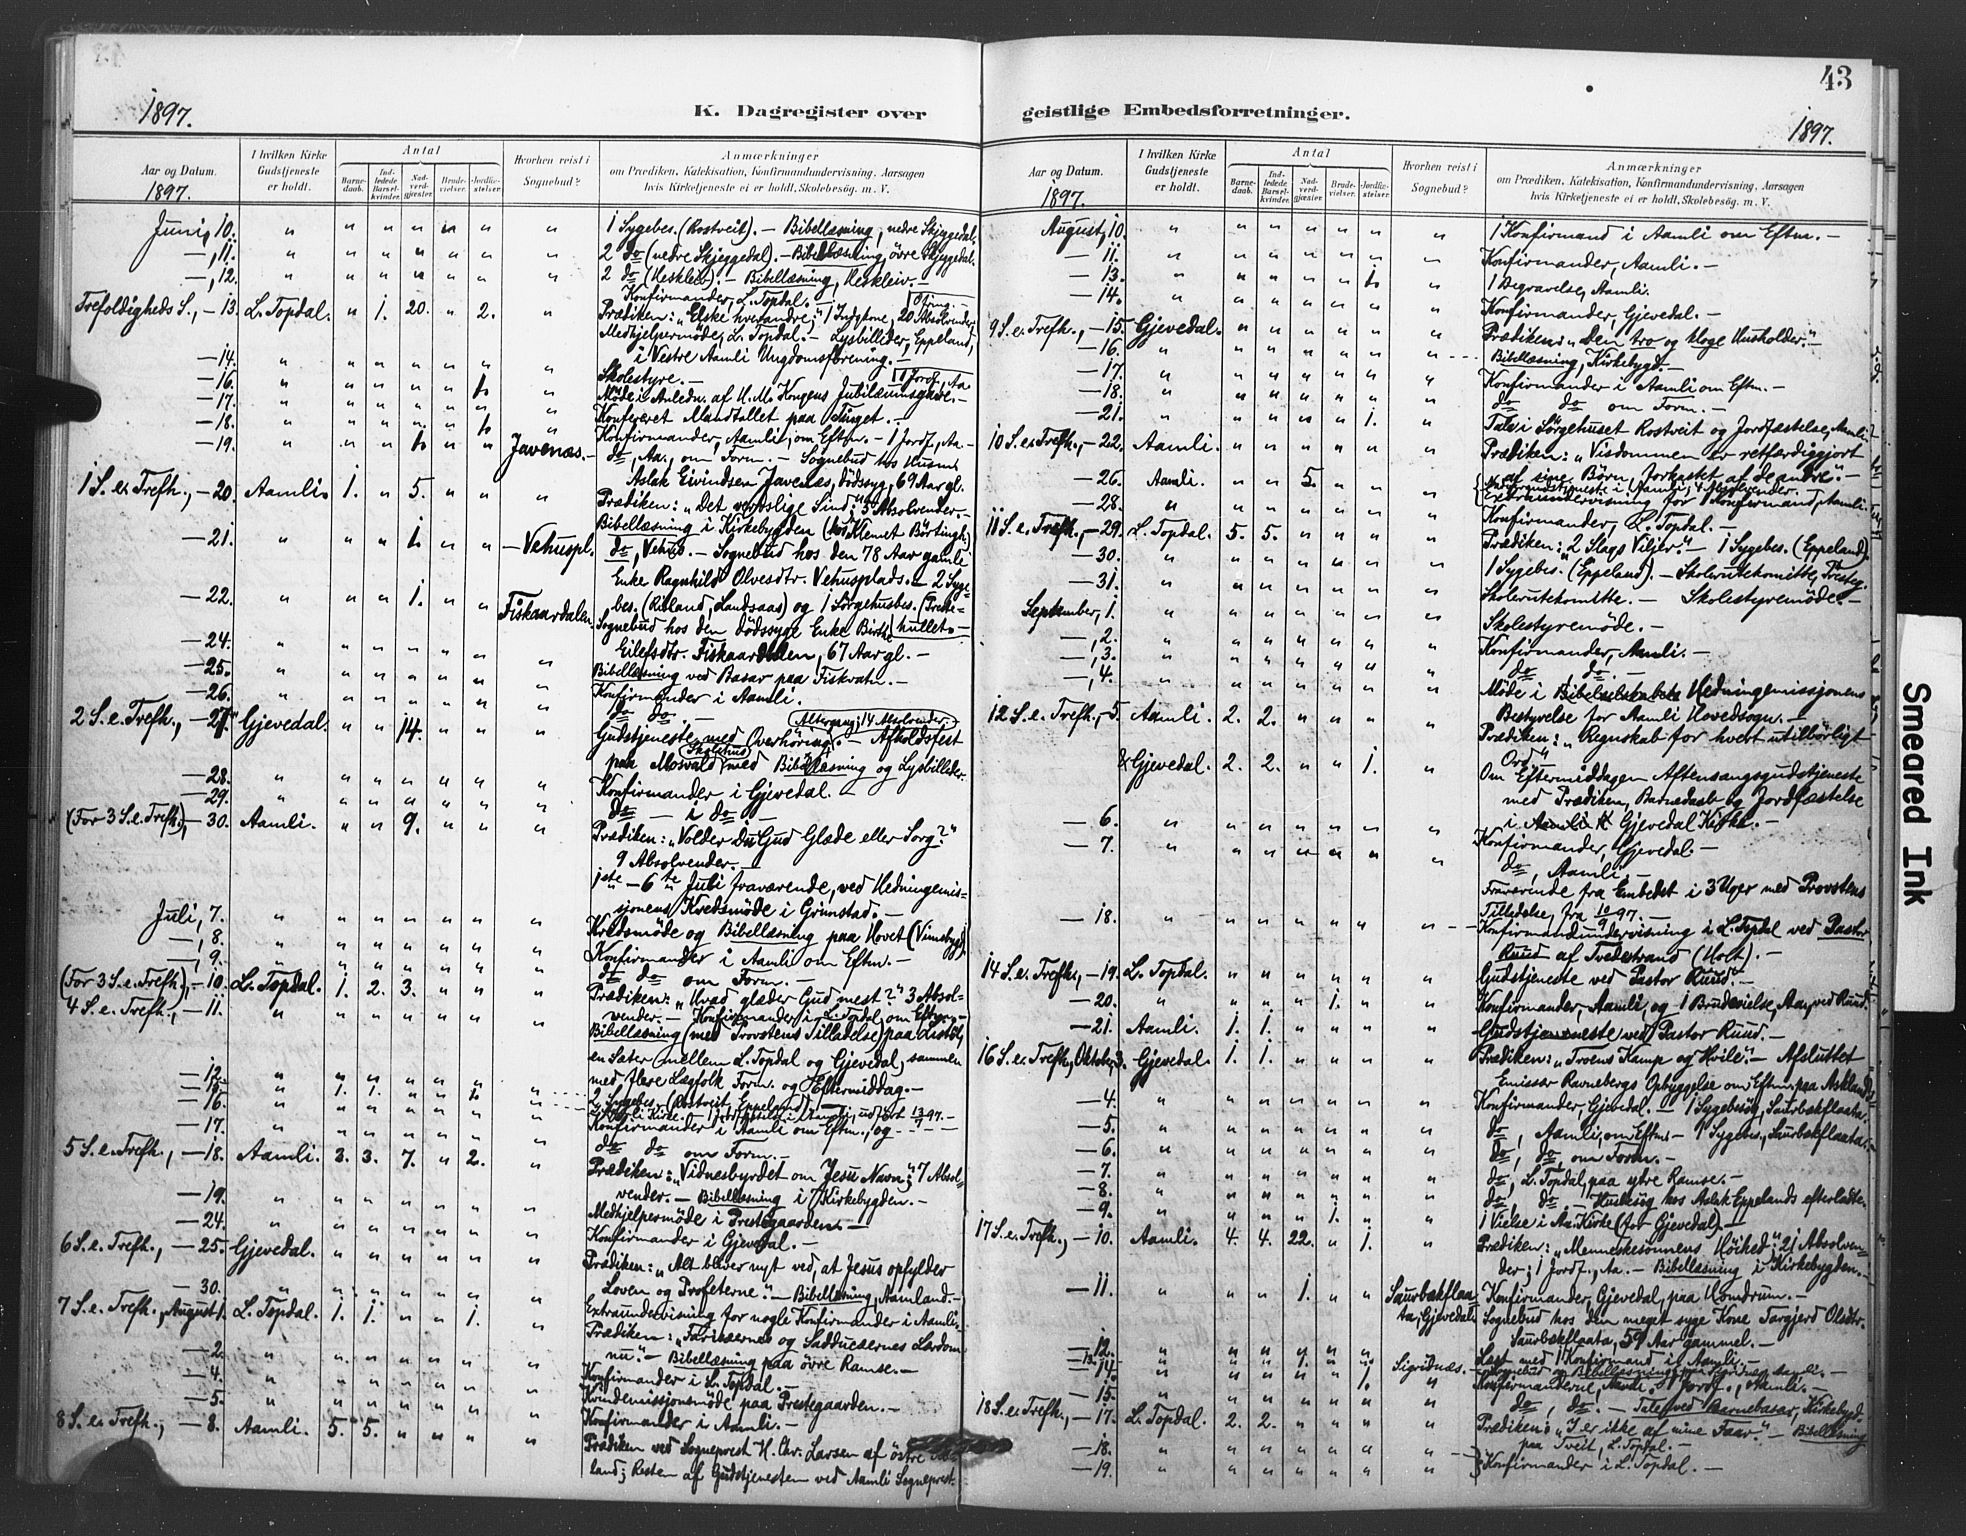 43
1897.
K. Dagregister over
geistlige Embedsforretninger.
1897.
Aar og Datum.
1897.
I hvilken Kirke Gudstjeneste er holdt.
Antal
Barnedaab.
Indledede Barselkvinder.
Nadverdgjæster.
Brudevielser.
Jordfæstelser.
Hvorhen reist i Sognebud?
Anmærkninger
om Prædiken, Katekisation, Konfirmandundervisning, Aarsagen
hvis Kirketjeneste ei er holdt, Skolebesög. m. V.
Juni, 10. " " " " " " " 1 Sygebes. (Rostveit). – Bibellæsning, nedre Skjeggedal.
—, 11. " " " " " " " 2 do (nedre Skjeggedal). – Bibellæsning, övre Skjeggedal.
—, 12. " " " " " " " 2 do (Heskleiv). – Bibellæsning, Heskleiv. –
Konfirmander, L. Topdal. –
Trefoldigheds S., — 13. L. Topdal. " 1. 20. " 2. " Prædiken: „Elske hverandre;" 1 Indgtne, 20 Absolvender,
Medhjelpermöde, L. Topdal. – Lysbilleder, Eppeland,
i Vestre Aamli Ungdomsforening. –
— 14. " Skolestyre. –
— 16. " Möde i Anledn. af H. M. Kongens Jubilæumsgave. –
— 17. " Konfereret Mandtallet paa Tinget. –
— 18. " Konfirmander, Aamli, om Eftm. – 1 Jordf., Aa. –
— 19. " Javenæs. – do, Aa., om Form. – Sognebud hos Husm.
Aslak Eivindsen Javenæs, dödssyg, 69 Aar gl.
1 S. e. Trefh., — 20. Aamli. 1. " 5. " " " Prædiken: „Det verdslige Sind;" 5 Absolvender. –
Bibellæsning i Kirkebygden (hos Klemet Börtingh.)
— 21. " " " 1. " " — Vehuspl. do, Vehus. – Sognebud hos den 78 Aar gamle
Enke Ragnhild Olvesdtr. Vehusplads. – 2 Syge-
— 22. " " " 1. " " Fiskaardalen. bes. (Risland, Landsaas) og 1 Sörgehusbes. (Treite-
Sognebud hos den dödssyge Enke Birthe hullet. –
— 24. " Eilefsdtr. Fiskaardalen, 67 Aar gl. –
— 25. " Bibellæsning ved Basar paa Fiskvatn. –
— 26. " Konfirmander i Aamli.
do do. –
2 S. e. Trefh., — 27. Gjevedal. " " 14. " " " Gudstjeneste med Overhöring. – Afholdsfest
Altergang; 14 Absolvender.
paa Mosvald Skolehus med Bibellæsning og Lysbilleder.
— 28. " Konfirmander i Gjevedal.
— 29. " do — i do —
(For 3 S. e. Trefh.), — 30. Aamli. " " 9. " " " Prædiken: „Volder Du Gud Glæde eller Sorg?"
9 Absolvender. –
1ste – 6te Juli fraværende, ved Hedningemis-
sjonens Kredsmöde i Grimstad. –
Juli, 7. " Kredsmöde og Bibellæsning paa Hovet (Vimsbygd).
—, 8. " Konfirmander i Aamli om Eftm. –
—, 9. " do do om Form. –
(For 3 S. e. Trefh.), — 10. L. Topdal. 1. 2. 3. " " " Prædiken: „Hvad glæder Gud mest?" 3 Absol-
4 S. e. Trefh., — 11. " vender. – Konfirmander i L. Topdal om Eftm. –
Bibellæsning (med Provstens Tilladelse) paa Listöl,
en Sæter mellem L. Topdal og Gjevedal, sammen
med flere Læsfolk Form. og Eftermiddag. –
— 12. " 2 Sygebes. (Rostveit, Eppeland). –
— 16. " Konfirmander i Aamli om Eftm., og
— 17. " do do om Form. –
5 S. e. Trefh., — 18. Aamli. 3. 3. 7. " 2. " Prædiken: „Vidnesbyrdet om Jesu Navn;" 7 Absol-
vender. – Bibellæsning i Kirkebygden. –
— 19. " Medhjelpermöde i Prestegaarden. –
— 24. " Konfirmander i Gjevedal. –
6 S. e. Trefh., — 25. Gjevedal. " Prædiken: „Alt bliver nyt ved, at Jesus opfylder
Loven og Profeterne." – Bibellæsning, Aamland. –
— 30. " Extraundervisning for nogle Konfirmander i Aamli.
7 S. e. Trefh., August 1. L. Topdal. 1. 1. " " 1. " Prædiken: „Farisæernes og Sadducæernes Lærdom
nu." – Bibellæsning paa övre Ramse. –
— 2. " Konfirmander i L. Topdal. –
— 4. " Kvindemissjonsmöde paa Prestegaarden. –
— 5. " Konfirmander i Aamli. –
8 S. e. Trefh., — 8. Aamli. 5. 5. " " " " Prædiken ved Sogneprest H. Chr. Larsen af östre
land; Resten af Gudstjenesten ved Aamli Sogneprest.
Aar og Datum.
1897.
I hvilken Kirke Gudstjeneste er holdt.
Antal
Barnedaab.
Indledede Barselkvinder.
Nadverdgjæster.
Brudevielser.
Jordfæstelser.
Hvorhen reist i Sognebud?
Anmærkninger
om Prædiken, Katekisation, Konfirmandundervisning, Aarsagen
hvis Kirketjeneste ei er holdt, Skolebesög. m. V.
August, 10. " 1 Konfirmand i Aamli om Eftm. –
— 11. " Konfirmander, Aamli. –
— 13. " 1 Begravelse, Aamli.
— 14. " Konfirmander, Gjevedal. –
9 S. e. Trefh., — 15. Gjevedal. " Prædiken: „Den tro og kloge Husholder." –
— 16. " Bibellæsning, Kirkebygd. –
— 17. " Konfirmander i Aamli om Eftm. –
— 18. " do do om Form. –
— 21. " " " " " 1. " Tale i Sörgehuset Rostveit og Jordfæstelse, Aamli.
10 S. e. Trefh., — 22. Aamli. " Prædiken: „Visdommen er retfærdiggjort
af sine Börn, forkastet af de andre." –
— 26. Aamli. " " 5. " " " Nadverdtjeneste i Aamli; 4 Absolvender.
Extraundervisning for 1 Konfirmand, Aamli.
— 28. " Konfirmander, L. Topdal. –
11 S. e. Trefh., — 29. L. Topdal. 5. 5. " " " " Prædiken: „2 Slags Viljer." – 1 Sygebes. (Eppeland).
— 30. " 1 Sygebes. (Eppeland). – Skolerutekomitte, Tresteg.
— 31. " Skolerutekomitte. – Skolestyremöde. –
September, 1. " Skolestyremöde. –
—, 2. " Konfirmander, Aamli. –
—, 3. " do, do. –
—, 4. " Möde i Bibelselskabets Hedningemissjonens
Bestyrelse for Aamli Hovedsogn. –
12 S. e. Trefh., 5. Aamli. 2. 2. " " " " Prædiken: „Regnskab for hvert utilbörligt
Ord."
& Gjevedal. 2. 2. " " 1. " Om Eftermiddagen Aftensangsgudstjeneste
med Prædiken, Barnedaab og Jordfæstelse
i Aamli K Gjevedal Kirke. –
— 6. " Konfirmander, Gjevedal. –
— 7. " do, Aamli. –
Fraværende fra Embedet i 3 Uger med Provstens
Tilladelse, fra 10/9 97. –
— 18. " Konfirmandundervisning i L. Topdal ved Pastor
Ruud af Tvedestrand (Holt). –
14 S. e. Trefh., — 19. L. Topdal. " Gudstjeneste ved Pastor Ruud. –
— 20. " " " " 1. " " Konfirmander, Aamli, og 1 Brudevielse, Aa., ved Ruud.
— 21. Aamli. 1. 1. " " " " Gudstjeneste ved Pastor Ruud. –
16 S. e. Trefh., Oktober 3. Gjevedal. 1. 1. " " " " Prædiken: „Troens Kamp og Hvile." – Afsluttet
Emissær Ravnebergs Opbyggelse om Eftm. paa Askland. –
— 4. " Konfirmander, Gjevedal. – 1 Sygebesög, Saurbækflaata.
— 5. " do, Aamli, om Eftm. – 1 Sygebes., Saurbækflaata. –
— 6. " do, do, om Form. –
— 7. " do, L. Topdal, paa ytre Ramse. –
— 8. " do, do, – Husbesög hos Aslak Eppelands efterladte. –
— 9. " " " " 1. " " 1 Vielse i Aa. Kirke (for Gjevedal). –
17 S. e. Trefh., — 10. Aamli. 4. 4. 22. " 1. " Prædiken: „Menneskesönnens Höihed;" 21 Absolven-
der; 1 Jordf., Aa. – Bibellæsning i Kirkebygden. –
— 11. " " " 1. " " Saurbækflaa- Konfirmander, Gjevedal, paa Homdrum. –
ta, Gjevedal. Sognebud hos den meget syge Kone Targjerd Olsdtr.
Saurbækflaata, 59 Aar gammel. –
— 12. " Læst med 1 Konfirmand i Aamli. –
— 13. " " " 1. " " Sigridnæs. – Sognebud og Bibellæsning paa Sigridnæs, Aamli. –
— 14. " " " " " 1. " Konfirmanderne, Aamli. 1 Jordf., Aamli. –
— 15. " do, do. – Tale ved Barnebasar, Kirkebygd.
18 S. e. Trefh., — 17. L. Topdal. 2. 2. " " " " Prædiken: „I er ikke af mine Faar." – Bibellæsning
paa Tveit, L. Topdal. –
— 18. "
— 19. " Konfirmander i L. Topdal. –
Smeared Ink